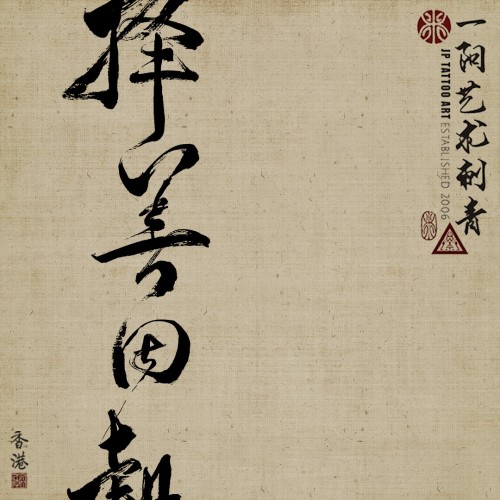 一阳艺术刺青
JP TATTOO ART ESTABLISHED 2006
择善固執
香港